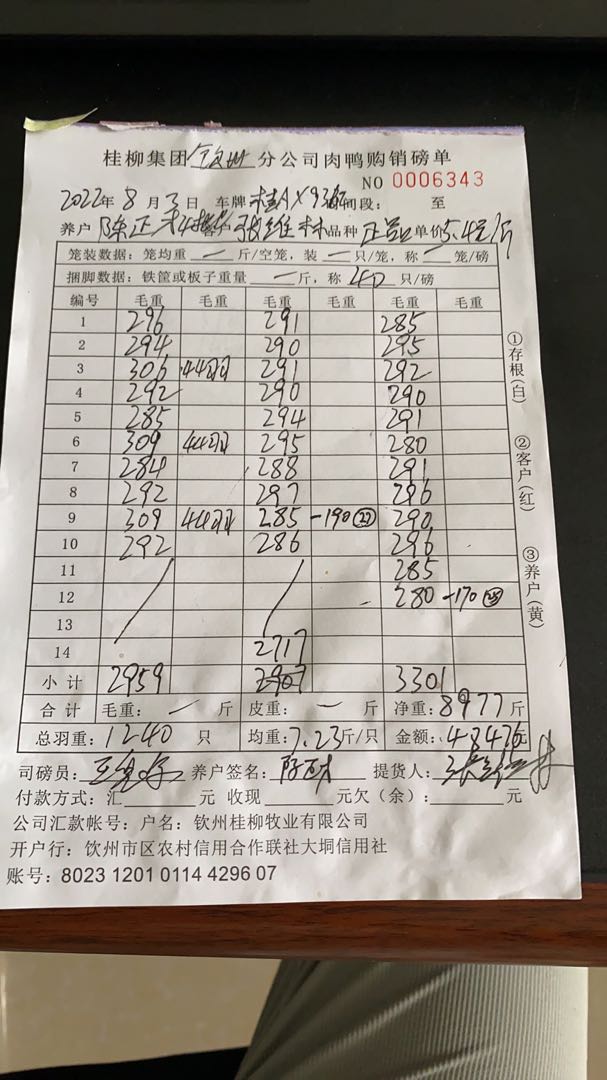 桂柳集团 钦州 分公司肉鸭购销磅单
NO 0006343
2022年 8 月 3 日 车牌 桂A 时段: 至
养户 陈正 张维林 品种 正品 单价 5.4元/斤
笼装数据: 笼均重 — 斤/空笼, 装 — 只/笼, 称 — 笼/磅
捆脚数据: 铁筐或板子重量 — 斤, 称 40 只/磅
编号 毛重 毛重 毛重 毛重 毛重 毛重
1 296 291 285
2 294 290 295
3 306 44羽 291 292
4 292 290 290
5 285 294 291
6 309 44羽 295 280
7 284 288 291
8 292 297 296
9 309 44羽 285 -190 290
10 292 286 296
11 285
12 280 -170
13
14 2717
小计 2959 2907 3301
合计 毛重: — 斤 皮重: — 斤 净重: 8977 斤
总羽重: 1240 只 均重: 7.23斤/只 金额: 48476元
司磅员: 养户签名: 提货人:
付款方式: 汇 元 收现 元欠(余): 元
公司汇款帐号: 户名: 钦州桂柳牧业有限公司
开户行: 钦州市区农村信用合作联社大垌信用社
账号: 8023 1201 0114 4296 07
①存根(白)
②客户(红)
③养户(黄)